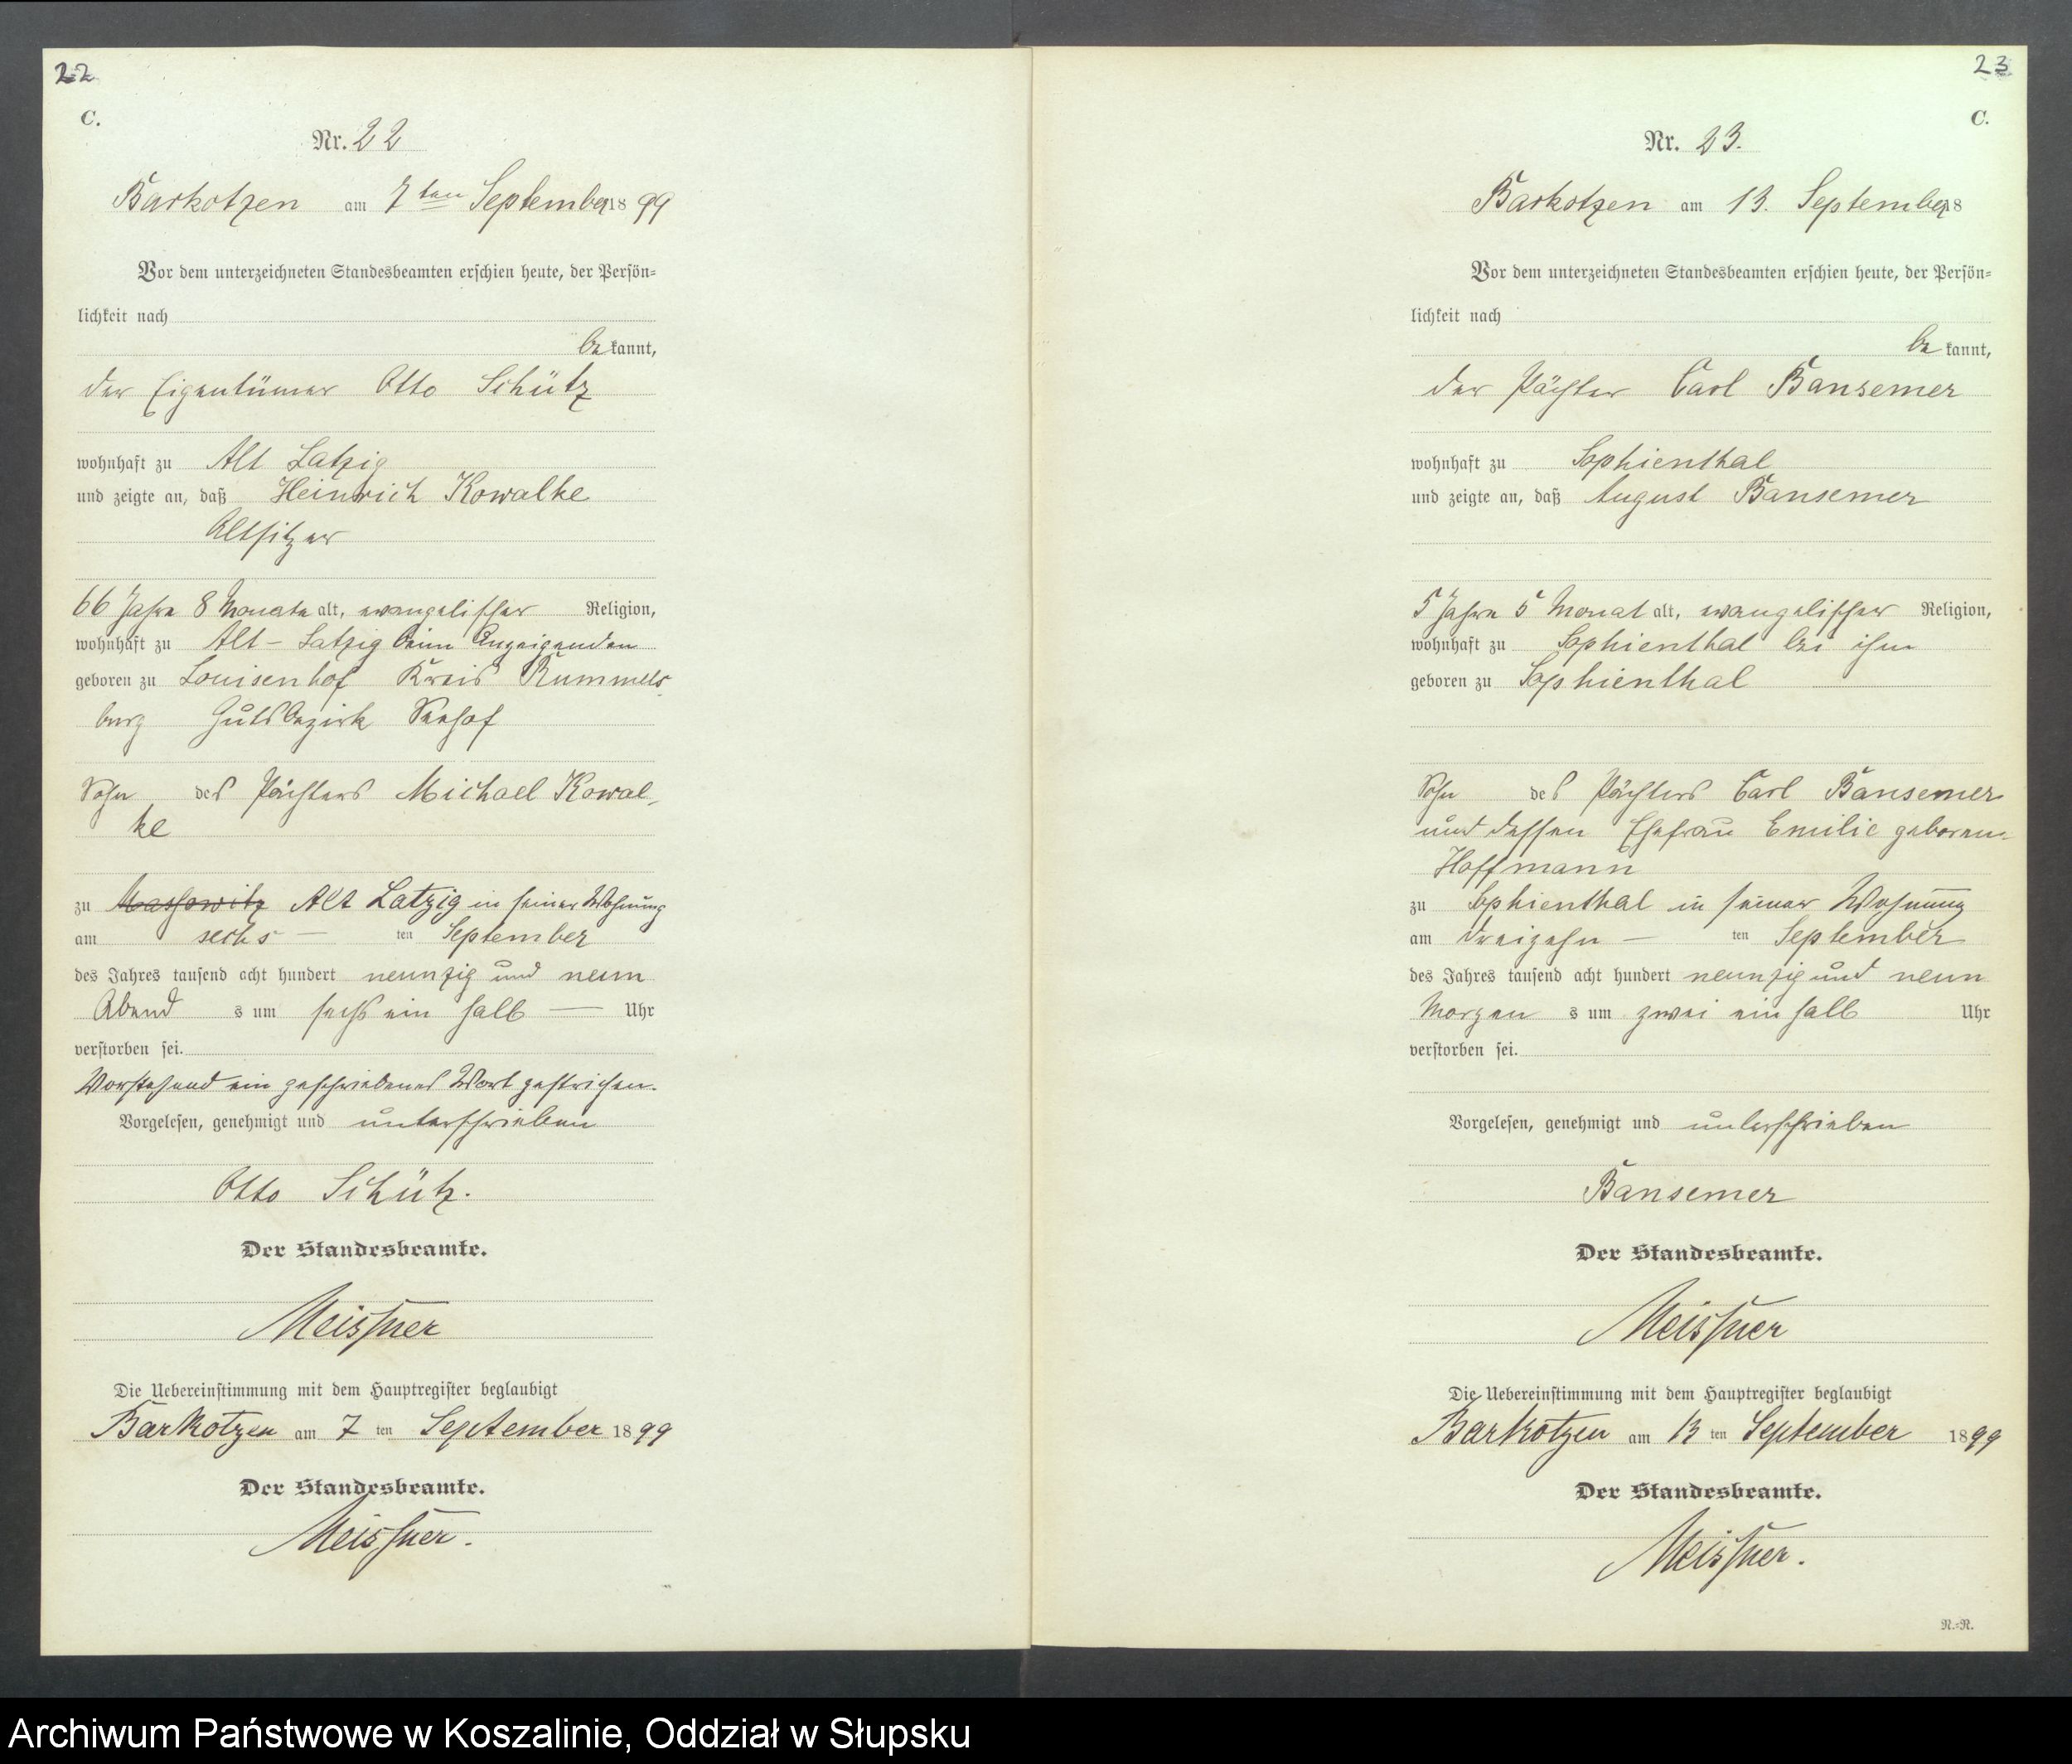 22
C.
Nr. 22
Barkotzen am 7ten September 1899
Vor dem unterzeichneten Standesbeamten erschien heute, der Persön=
lichkeit nach
bekannt,
der Eigentümer Otto Schütz
wohnhaft zu Alt Latzig
und zeigte an, daß Heinrich Kowalke
Altsitzer
66 Jahre 8 Monate alt, evangelischer Religion,
wohnhaft zu Alt-Latzig beim Anzeigenden
geboren zu Louisenhof Kreis Rummels-
burg Gutsbezirk Seehof
Sohn des Pächters Michael Kowal-
ke
zu Massowitz Alt Latzig in seiner Wohnung
am sechs ten September
des Jahres tausend acht hundert neunzig und neun
Abends um sechs ein halb Uhr
verstorben sei.
Vorstehend ein geschriebenes Wort gestrichen.
Vorgelesen, genehmigt und unterschrieben
Otto Schütz.
Der Standesbeamte.
Meissner
Die Uebereinstimmung mit dem Hauptregister beglaubigt
Barkotzen am 7 ten September 1899
Der Standesbeamte.
Meissner.
23
C.
Nr. 23.
Barkotzen am 13. September 18
Vor dem unterzeichneten Standesbeamten erschien heute, der Persön=
lichkeit nach
bekannt,
der Pächter Carl Bansemer
wohnhaft zu Sophienthal
und zeigte an, daß August Bansemer
5 Jahre 5 Monat alt, evangelischer Religion,
wohnhaft zu Sophienthal bei ihm
geboren zu Sophienthal
Sohn des Pächters Carl Bansemer
und dessen Ehefrau Emilie geboren-
Hoffmann
zu Sophienthal in seiner Wohnung
am dreizehn ten September
des Jahres tausend acht hundert neunzig und neun
Morgens um zwei ein halb Uhr
verstorben sei.
Vorgelesen, genehmigt und unterschrieben
Bansemer
Der Standesbeamte.
Meissner
Die Uebereinstimmung mit dem Hauptregister beglaubigt
Barkotzen am 13 ten September 1899
Der Standesbeamte.
Meissner.
N.=N.
Archiwum Państwowe w Koszalinie, Oddział w Słupsku